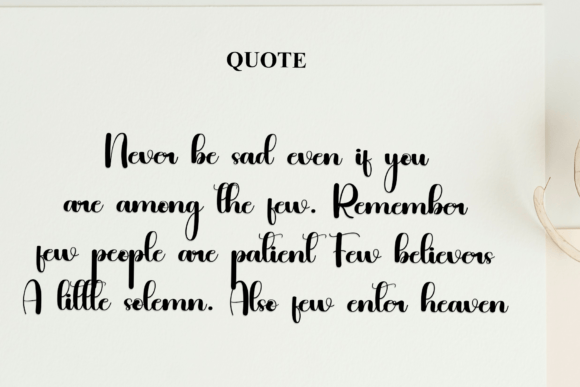 QUOTE
Never be sad even if you
are among the few. Remember
few people are patient Few believers
A little solemn. Also few enter heaven